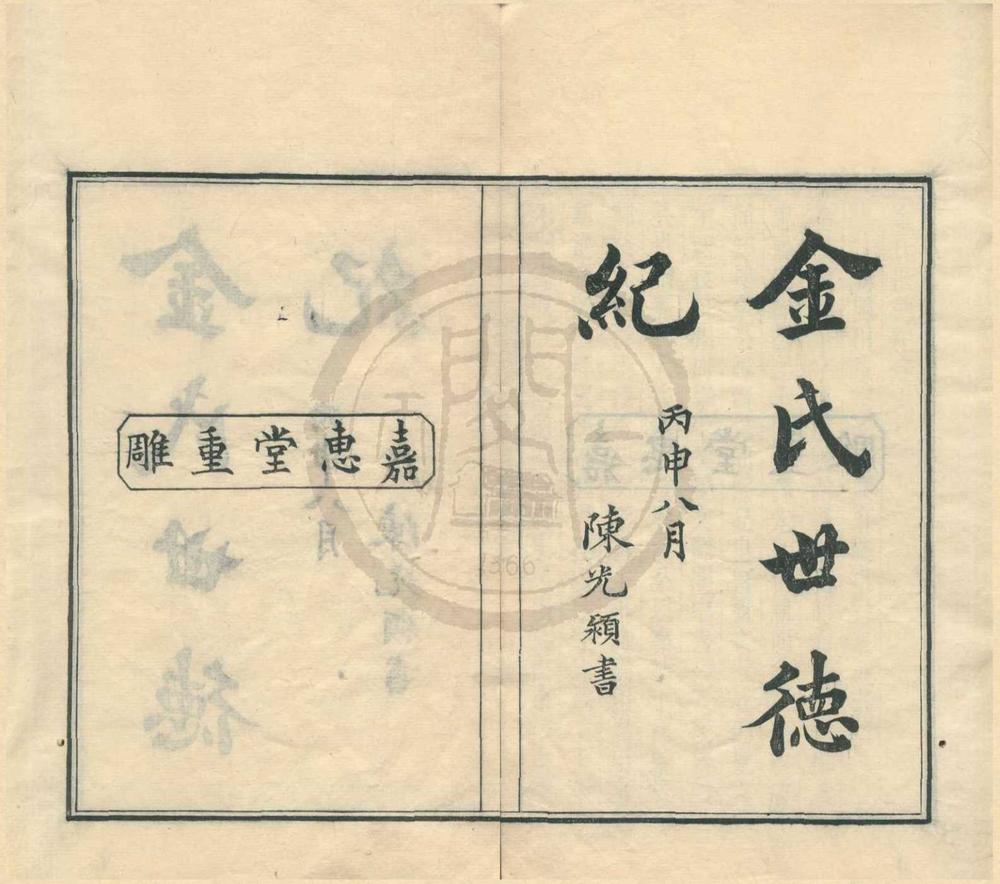 金氏世德
紀
丙申八月
陳光穎書
嘉惠堂重雕
1366